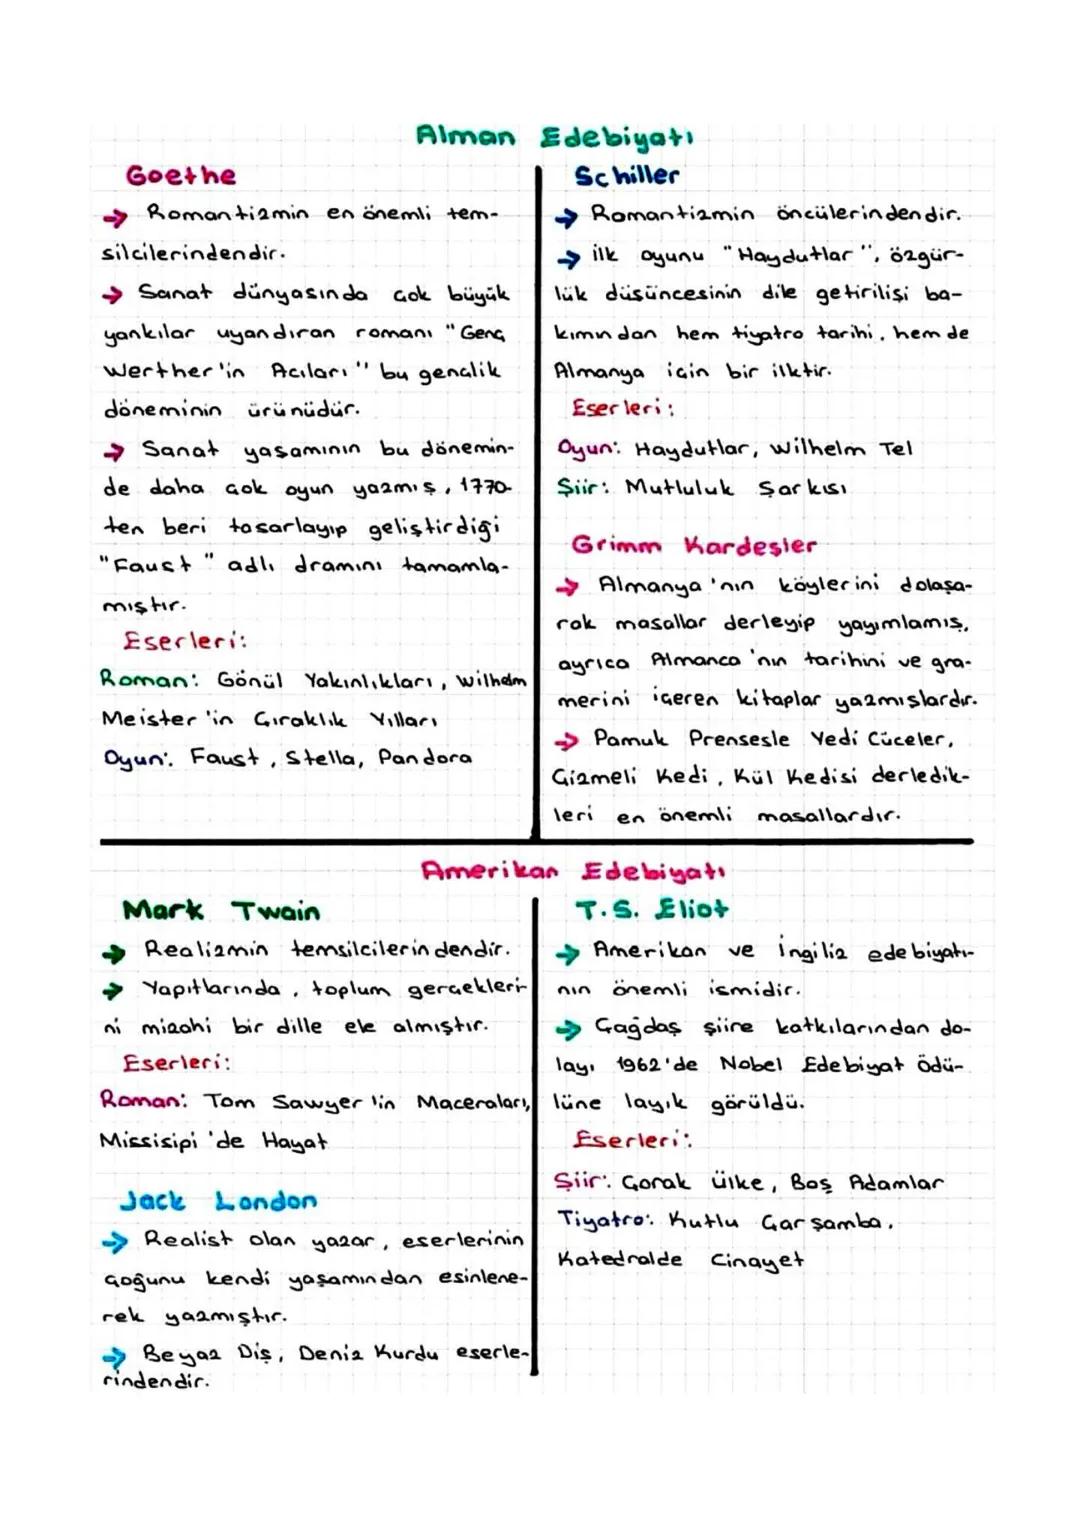 Alman Edebiyatı
Goethe
→ Romantizmin en önemli tem-
silcilerindendir.
→ Sanat dünyasında çok büyük
yankılar uyandıran romanı "Genç
Werther'in Acıları" bu gençlik
döneminin ürünüdür.
→ Sanat yaşamının bu dönemin-
de daha çok oyun yazmış, 1770-
ten beri tasarlayıp geliştirdiği
"Faust" adlı dramını tamamla-
mıştır.
Eserleri:
Roman: Gönül Yakınlıkları, Wilhelm
Meister'in Çıraklık Yılları
Oyun: Faust, Stella, Pandora
Schiller
→ Romantizmin öncülerindendir.
→ İlk oyunu "Haydutlar", özgür-
lük düşüncesinin dile getirilişi ba-
kımından hem tiyatro tarihi, hem de
Almanya için bir ilktir.
Eserleri:
Oyun: Haydutlar, Wilhelm Tel
Şiir: Mutluluk Şarkısı
Grimm Kardeşler
→ Almanya'nın köylerini dolaşa-
rak masallar derleyip yayımlamış,
ayrıca Almanca'nın tarihini ve gra-
merini içeren kitaplar yazmışlardır.
→ Pamuk Prensesle Yedi Cüceler,
Çizmeli Kedi, Kül Kedisi derledik-
leri en önemli masallardır.
Amerikan Edebiyatı
Mark Twain
→ Realizmin temsilcilerindendir.
→ Yapıtlarında, toplum gerçekleri-
ni mizahi bir dille ele almıştır.
Eserleri:
Roman: Tom Sawyer'in Maceraları,
Missisipi'de Hayat
Jack London
→ Realist olan yazar, eserlerinin
çoğunu kendi yaşamından esinlene-
rek yazmıştır.
→ Beyaz Diş, Deniz Kurdu eserle-
rindendir.
T.S. Eliot
→ Amerikan ve İngiliz edebiyatı-
nın önemli ismidir.
→ Çağdaş şiire katkılarından do-
layı 1962'de Nobel Edebiyat Ödü-
lüne layık görüldü.
Eserleri:
Şiir: Çorak Ülke, Boş Adamlar
Tiyatro: Kutlu Çarşamba,
Katedralde Cinayet